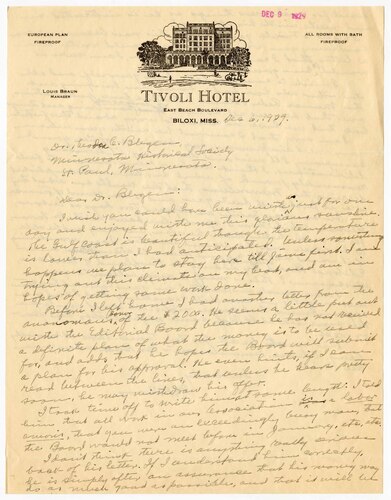 DEC 9 1929
EUROPEAN PLAN
FIREPROOF
ALL ROOMS WITH BATH
FIREPROOF
LOUIS BRAUN
MANAGER
TIVOLI HOTEL
EAST BEACH BOULEVARD
BILOXI, MISS. Dec 6, 1929.
Dr. Theodore C. Blegen
Minnesota Historical Society
St. Paul, Minnesota.
Dear Dr. Blegen:
I wish you could have been with us just for one
day and enjoyed with me this glorious sunshine.
The Gulf coast is beautiful though the temperature
is lower than I had anticipated. Unless something
happens we plan to stay here till June first. I am
trying out this climate on my throat, and am in
hopes of getting some work done.
Before I left home I had another letter from the
donor of the $2000. He seems a little put out
with the Editorial Board because he has not received
a definite plan of what the money is to be used
for, and adds that he hopes the Board will submit
a plan for his approval. He even hints, if I can
read between the lines, that unless he hears pretty
soon, he may withdraw his offer.
I took time off to write him at some length. I told
him that all work in our Association is a labor
amoris, that you were an exceedingly busy man, that
the Board would not meet before in January, etc. etc.
I don't think there is anything really serious
back of his letter. If I understand him correctly,
he is simply after an assurance that his money may
do as much good as possible, and that it will be